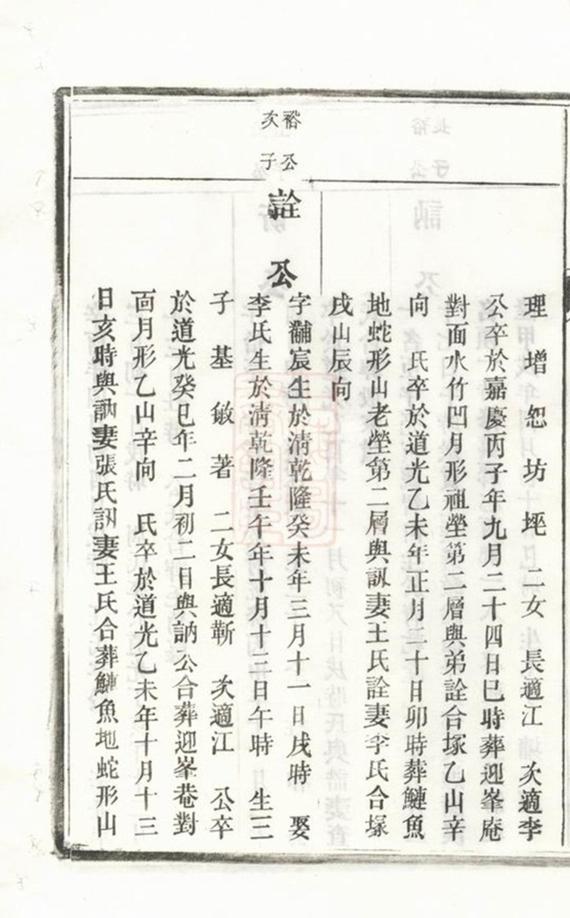 理增恕坊坪二女長適江次適李
公卒於嘉慶丙子年九月二十四日巳時葬迎峯庵
對面水竹凹月形祖塋第二層與弟詮合塚乙山辛
向氏卒於道光乙未年正月二十日卯時葬鰱魚
地蛇形山老塋第二層與訊妻王氏詮妻李氏合塚
戌山辰向
裕公
次子
詮公
字黼宸生於清乾隆癸未年三月十一日戌時娶
李氏生於清乾隆壬午年十月十二日午時生三
子基敏著二女長適靳次適江公卒
於道光癸巳年二月初二日與訥公合葬迎峯菴對
面月形乙山辛向氏卒於道光乙未年十月十三
日亥時與訥妻張氏訊妻王氏合葬鰱魚地蛇形山